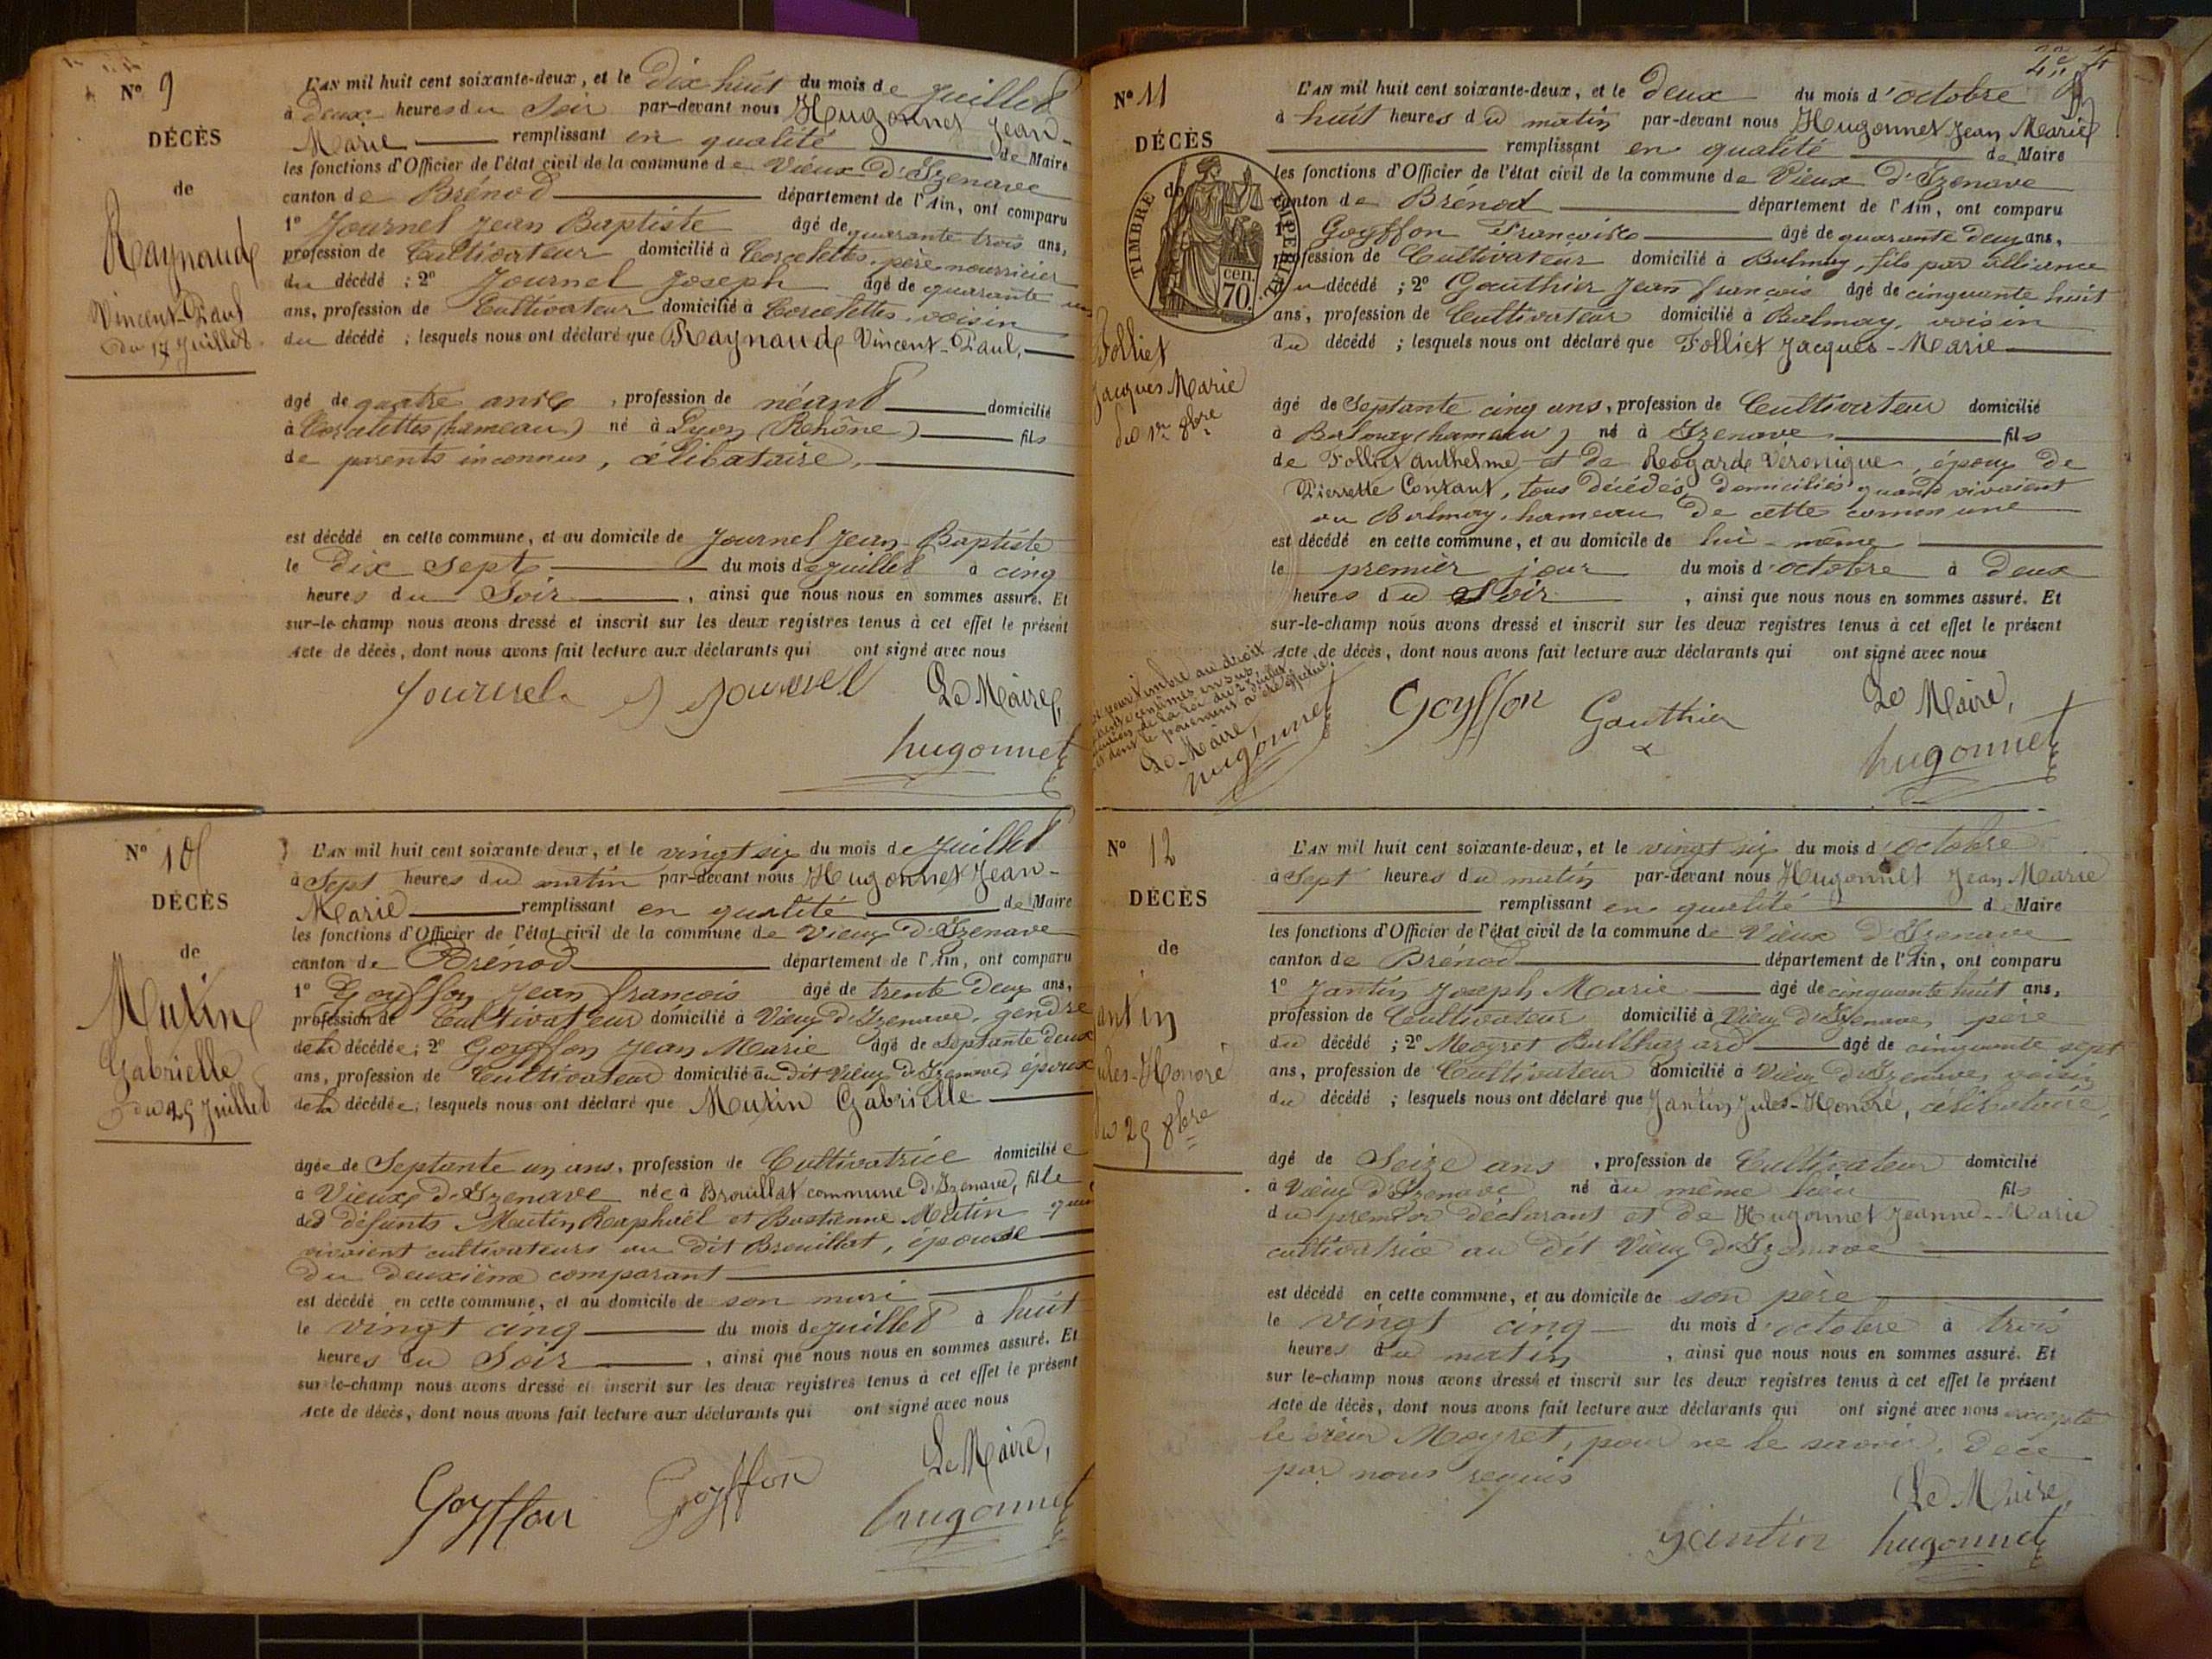 N° 9
DÉCÈS
de
Raynaud
Vincent-Paul
du 17 Juillet
L'AN mil huit cent soixante-deux, et le Dix huit du mois de Juillet
à deux heures du Soir par-devant nous Hugonnet Jean-
Marie remplissant en qualité de Maire
les fonctions d'Officier de l'état civil de la commune de Vieux D'Izenave
canton de Brénod département de l'Ain, ont comparu
1° Journel Jean Baptiste âgé de quarante trois ans,
profession de Cultivateur domicilié à Corcelettes, père nourricier
du décédé ; 2° Journel Joseph âgé de quarante un
ans, profession de Cultivateur domicilié à Corcelettes, voisin
du décédé ; lesquels nous ont déclaré que Raynaud Vincent-Paul,
âgé de quatre ans, profession de néant domicilié
à Corcelettes (hameau) né à Lyon (Rhône) fils
de parents inconnus, célibataire,
est décédé en cette commune, et au domicile de Journel Jean-Baptiste
le Dix Sept du mois de juillet à cinq
heures du Soir, ainsi que nous nous en sommes assuré. Et
sur-le-champ nous avons dressé et inscrit sur les deux registres tenus à cet effet le présent
Acte de décès, dont nous avons fait lecture aux déclarants qui ont signé avec nous
Journel Journel Le Maire,
hugonnet
N° 10
DÉCÈS
de
Mutin
Gabrielle
du 25 Juillet
L'AN mil huit cent soixante-deux, et le vingt six du mois de Juillet
à Sept heures du matin par-devant nous Hugonnet Jean-
Marie remplissant en qualité de Maire
les fonctions d'Officier de l'état civil de la commune de Vieux D'Izenave
canton de Brénod département de l'Ain, ont comparu
1° Goyffon Jean françois âgé de trente Deux ans,
profession de Cultivateur domicilié à Vieux D'Izenave, gendre
de la décédée ; 2° Goyffon Jean Marie âgé de Septante deux
ans, profession de Cultivateur domicilié au Dit Vieux D'Izenave, époux
de la décédée ; lesquels nous ont déclaré que Mutin Gabrielle
âgée de Septante un ans, profession de Cultivatrice domiciliée
à Vieux D'Izenave née à Brouillat commune d'Izenave, fille
des défunts Mutin Raphaël et Bastienne Mutin quand
vivaient cultivateurs au dit Brouillat, épouse
du Deuxième comparant
est décédé en cette commune, et au domicile de son mari
le vingt cinq du mois de juillet à huit
heures du Soir, ainsi que nous nous en sommes assuré. Et
sur-le-champ nous avons dressé et inscrit sur les deux registres tenus à cet effet le présent
Acte de décès, dont nous avons fait lecture aux déclarants qui ont signé avec nous
Goyffon Goyffon Le Maire,
hugonnet
N° 11
DÉCÈS
de
TIMBRE IMPÉRIAL
70 cen
Folliet
Jacques Marie
du 1er 8bre
L'AN mil huit cent soixante-deux, et le deux du mois d'octobre
à huit heures du matin par-devant nous Hugonnet Jean Marie
remplissant en qualité de Maire
les fonctions d'Officier de l'état civil de la commune de Vieux D'Izenave
canton de Brénod département de l'Ain, ont comparu
1° Goyffon François âgé de quarante deux ans,
profession de Cultivateur domicilié à Balmay, fils par alliance
du décédé ; 2° Gauthier Jean françois âgé de cinquante huit
ans, profession de Cultivateur domicilié à Balmay, voisin
du décédé ; lesquels nous ont déclaré que Folliet Jacques-Marie
âgé de Septante cinq ans, profession de Cultivateur domicilié
à Balmay (hameau) né à Izenave fils
de Folliet Anthelme et de Véronique, époux de
Pierrette Contant, tous décédés, domiciliés quand vivaient
au Balmay, hameau de cette commune
est décédé en cette commune, et au domicile de lui-même
le premier jour du mois d'octobre à deux
heures du Soir, ainsi que nous nous en sommes assuré. Et
sur-le-champ nous avons dressé et inscrit sur les deux registres tenus à cet effet le présent
Acte de décès, dont nous avons fait lecture aux déclarants qui ont signé avec nous
pour timbre au droit
centimes en sus,
de la loi du 2 juillet
dont le paiement a été effectué.
Le Maire,
hugonnet
Goyffon Gauthier Le Maire,
hugonnet
N° 12
DÉCÈS
de
antin
ules-Honoré
du 25 8bre
L'AN mil huit cent soixante-deux, et le vingt six du mois d'octobre
à Sept heures du matin par-devant nous Hugonnet Jean Marie
remplissant en qualité de Maire
les fonctions d'Officier de l'état civil de la commune de Vieux D'Izenave
canton de Brénod département de l'Ain, ont comparu
1° Jantin Joseph Marie âgé de cinquante huit ans,
profession de Cultivateur domicilié à Vieux D'Izenave, père
du décédé ; 2° Moyret Balthazard âgé de cinquante sept
ans, profession de Cultivateur domicilié à Vieux D'Izenave, voisin
du décédé ; lesquels nous ont déclaré que Jantin Jules-Honoré, célibataire,
âgé de Seize ans, profession de Cultivateur domicilié
à Vieux D'Izenave né au même lieu fils
du premier déclarant et de Hugonnet Jeanne-Marie
cultivatrice au dit Vieux D'Izenave
est décédé en cette commune, et au domicile de son père
le vingt cinq du mois d'octobre à trois
heures du matin, ainsi que nous nous en sommes assuré. Et
sur le-champ nous avons dressé et inscrit sur les deux registres tenus à cet effet le présent
Acte de décès, dont nous avons fait lecture aux déclarants qui ont signé avec nous excepté
le sieur Moyret, pour ne le savoir, de ce
par nous requis
Le Maire,
jantin hugonnet